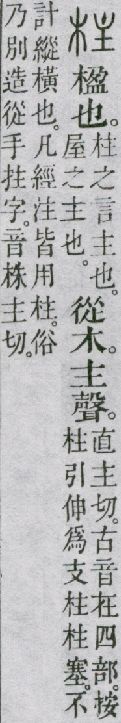 柱
楹也。
柱之言主也。
屋之主也。
從木。主聲。
直主切。古音在四部。按
柱引伸爲支柱柱塞。不
計縱橫也。凡經注皆用柱。俗
乃別造從手拄字。音株主切。